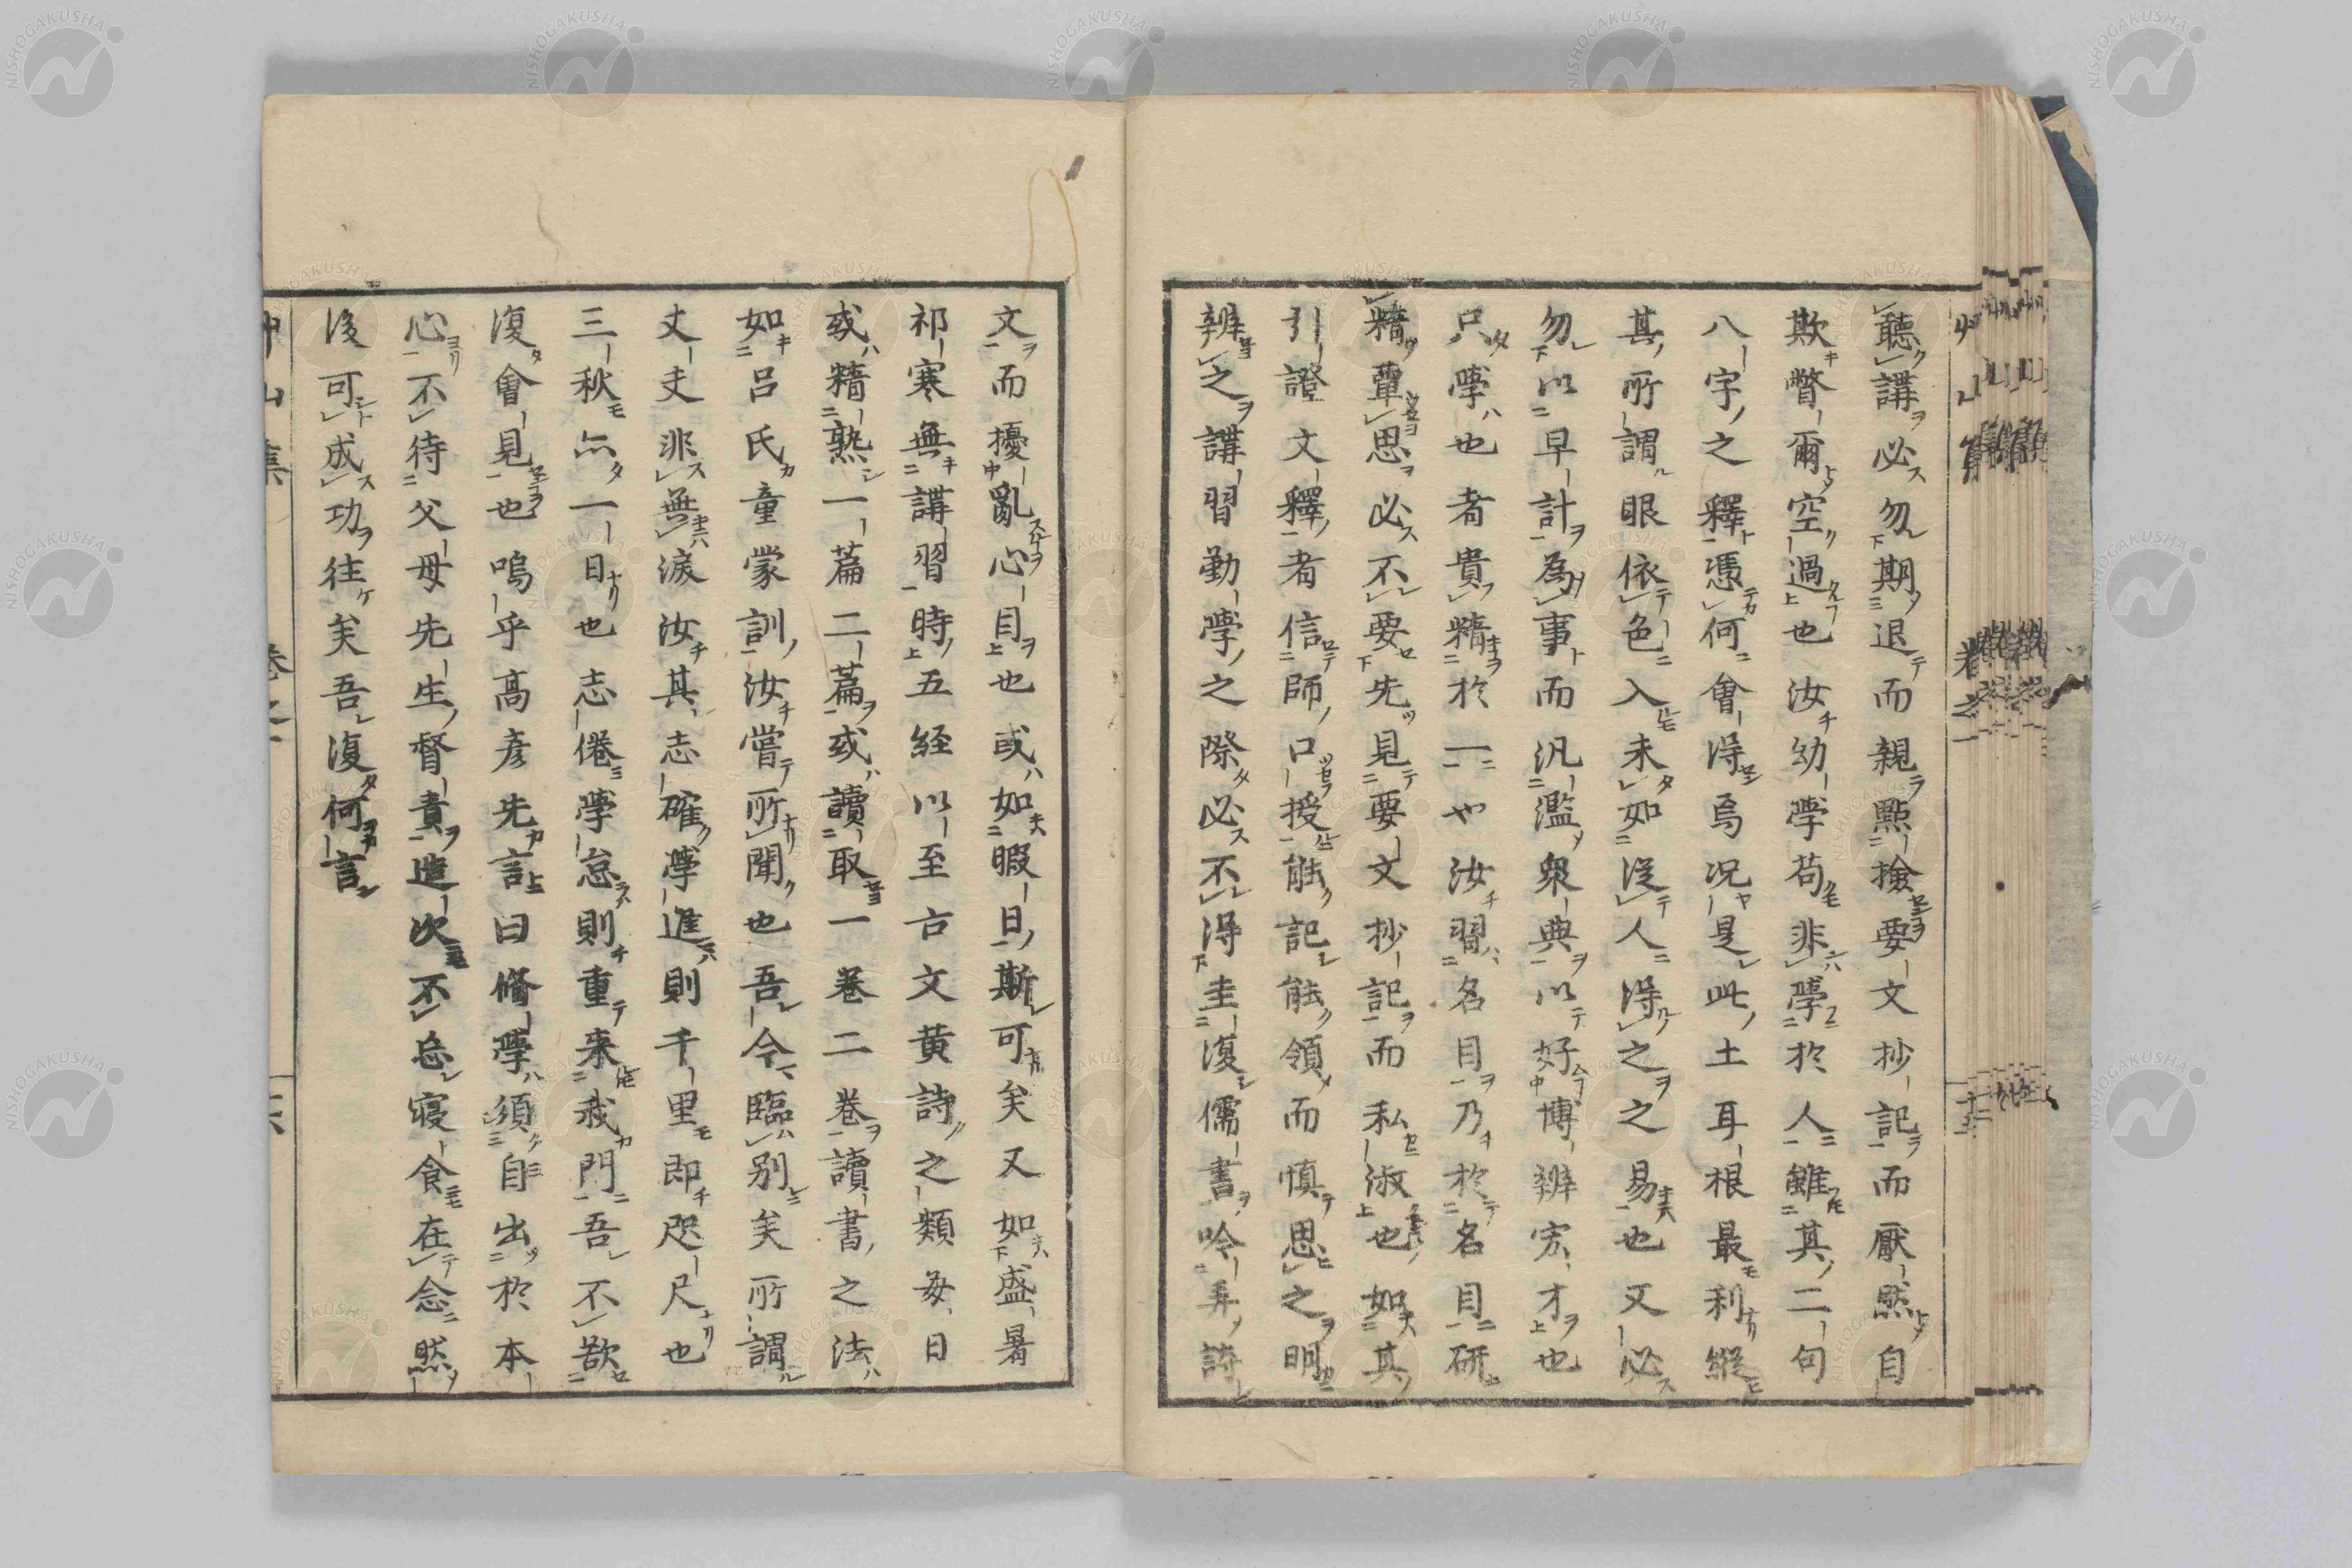 聽講必勿期退而親點撿要文抄記而厭然自
欺瞥爾空過也汝幼學苟非學於人雖其二句
八字之釋憑何會得焉況是此土耳根最利縱
其所謂眼依色入未如從人得之之易也又必
勿以早計為事而汎濫衆典以好博辨宏才也
只學也者貴精於一也汝習名目乃於名目研
精覃思必不要先見要文抄記而私淑也如其
引證文釋者信師口授能記能領而慎思之明
辨之講習勤學之際必不得圭復儒書吟弄詩
文而擾亂心目也或如暇日斯可矣又如盛暑
祁寒無講習時五経以至古文黄詩之類每日
或精熟一篇二篇或讀取一巻二巻讀書之法
如呂氏童蒙訓汝嘗所聞也吾今臨別矣所謂
丈夫非無淚汝其志確學進則千里即咫尺也
三秋亦一日也志倦學怠則重来我門吾不欲
復會見也嗚乎高彦先言曰修學須自出於本
心不待父母先生督責造次不忘寝食在念然
後可成功往矣吾復何言